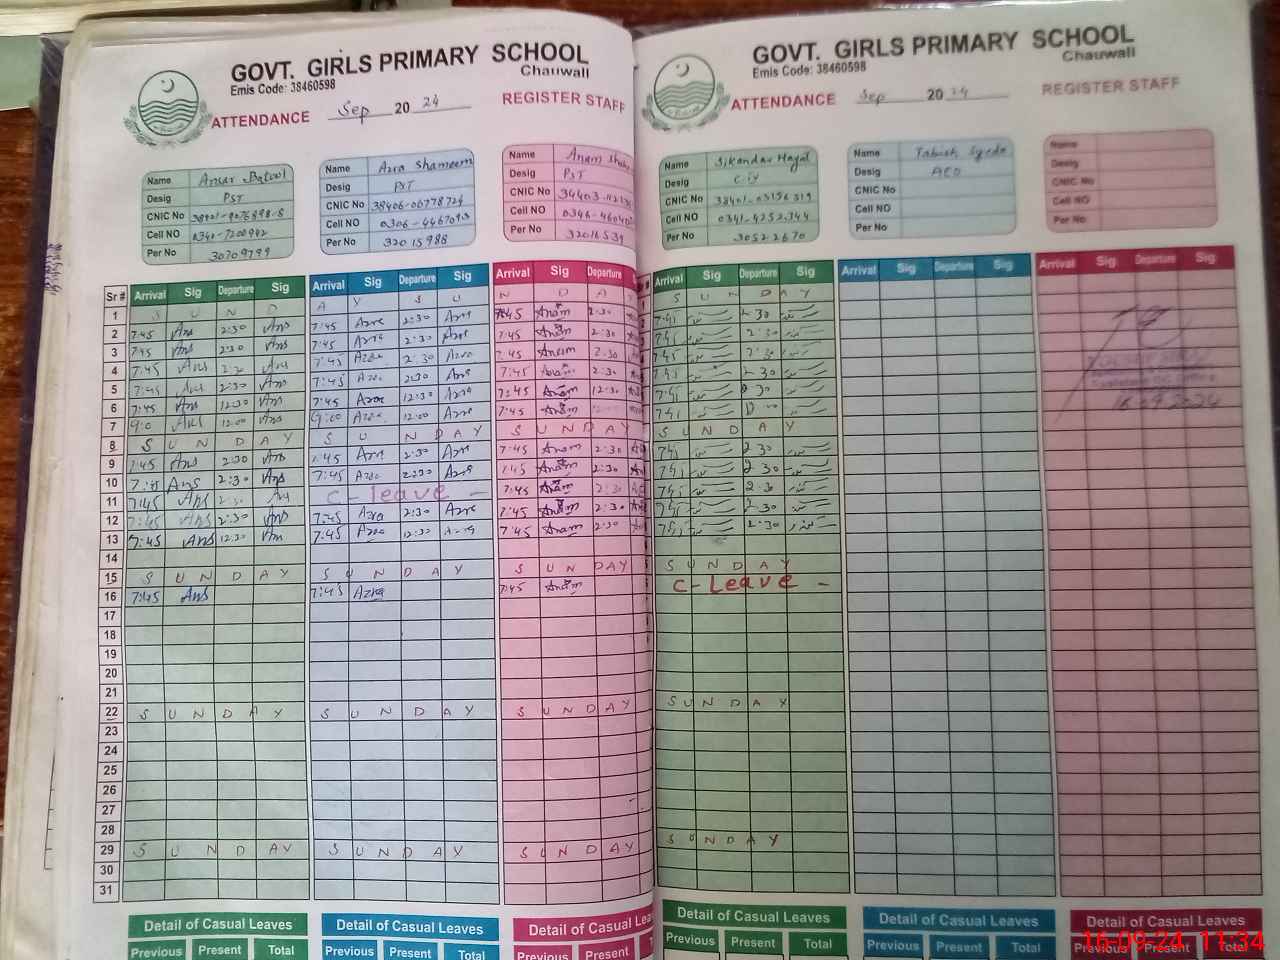 GOVT. GIRLS PRIMARY SCHOOL
Chauwall
Emis Code: 38460598
ATTENDANCE Sep 2024 REGISTER STAFF
Name Ansar Batool
Desig PST
CNIC No
Cell NO 0340-7200942
Per No 30709799
Name Azra Shameem
Desig PST
CNIC No 38406-06778724
Cell NO 0306-4467093
Per No 32015988
Name Anam
Desig PST
CNIC No 34403
Cell NO 0346-46040
Per No 32016539
Arrival Sig Departure Sig Arrival Sig Departure Sig Arrival Sig Departure
Sr #
1 S U N D A Y S U N D A Y
2 7:45 Ans 2:30 Ans 7:45 Azra 2:30 Azra 7:45 Anam 2:30
3 7:45 Ans 2:30 Ans 7:45 Azra 2:30 Azra 7:45 Anam 2:30
4 7:45 Ans Ans 7:45 Azra 2:30 Azra 7:45 Anam 2:30
5 7:45 Ans 2:30 Ans 7:45 Azra 2:30 7:45 Anam 2:30
6 7:45 Ans 12:30 Ans 7:45 Azra 12:30 Azra 7:45 Anam 12:30
7 9:0 Ans 12:00 Ans 9:00 Azra 12:00 Azra 7:45 Anam
8 S U N D A Y S U N D A Y S U N D A Y
9 7:45 Ans 2:30 Ans 7:45 Azra 2:30 Azra 7:45 Anam 2:30
10 7:45 Ans 2:30 Ans 7:45 Azra 2:30 Azra 7:45 Anam 2:30
11 7:45 Ans 2:30 C-leave - 7:45 Anam 2:30
12 7:45 Ans 2:30 Ans 7:45 Azra 2:30 Azra 7:45 Anam 2:30
13 7:45 Ans 12:30 Ans 7:45 Azra 12:30 7:45 Anam 2:30
14
15 S U N D A Y S U N D A Y S U N D A Y
16 7:45 Ans 7:45 Azra 7:45 Anam
17
18
19
20
21
22 S U N D A Y S U N D A Y S U N D A Y
23
24
25
26
27
28
29 S U N D A Y S U N D A Y S U N D A Y
30
31
Detail of Casual Leaves Detail of Casual Leaves Detail of Casual Lea
Previous Present Total Previous Present Total Previous Present
GOVT. GIRLS PRIMARY SCHOOL
Chauwall
Emis Code: 38460598
ATTENDANCE Sep 2024 REGISTER STAFF
Name Sikandar Hayat
Desig C-IV
CNIC No 38401-03156319
Cell NO 0341-4252344
Per No 30522670
Name Tabish Syeda
Desig AEO
CNIC No
Cell NO
Per No
Name
Desig
CNIC No
Cell NO
Per No
Arrival Sig Departure Sig Arrival Sig Departure Sig Arrival Sig Departure Sig
S U N D A Y
7:45 2:30
7:45 2:30
7:45 2:30
7:45 2:30
7:45
7:45
S U N D A Y
7:45 2:30
7:45 2:30
7:45 2:30
7:45 2:30
7:45 2:30
S U N D A Y
C-Leave -
S U N D A Y
S U N D A Y
16.09.2024
Detail of Casual Leaves Detail of Casual Leaves Detail of Casual Leaves
Previous Present Total Previous Present Total Previous Present Total
16-09-24 11:34